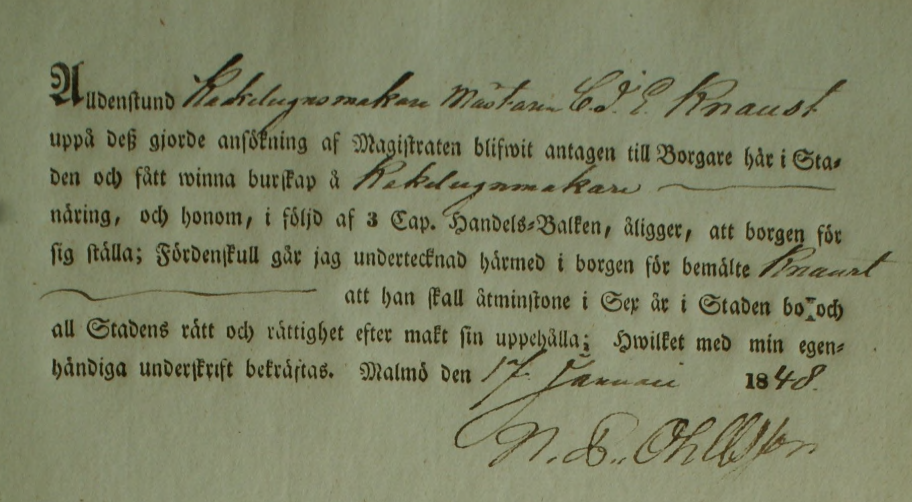 Alldenstund Kakelugnsmakare Mästaren C. J. E. Knaust
uppå deß gjorde ansökning af Magistraten blifwit antagen till Borgare här i Sta-
den och fått winna burskap å Kakelugnmakare
näring, och honom, i följd af 3 Cap. Handels-Balken, åligger, att borgen för
sig ställa; Fördenskull går jag undertecknad härmed i borgen för bemälte Knaust
att han skall åtminstone i Sex år i Staden bo och
all Stadens rätt och rättighet efter makt sin uppehålla; Hwilket med min egen-
händiga underskrift bekräftas. Malmö den 17 Januari 1848.
N. P. Ohlsson